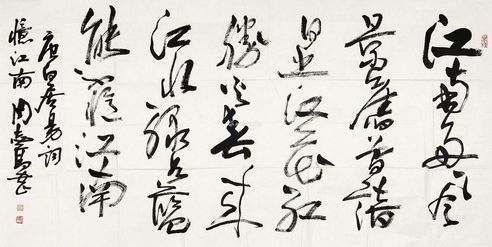 江南好風
景舊曾諳
日出江花紅
勝火春來
江水綠如藍
能不憶江南
唐白居易詞
憶江南 周志高書